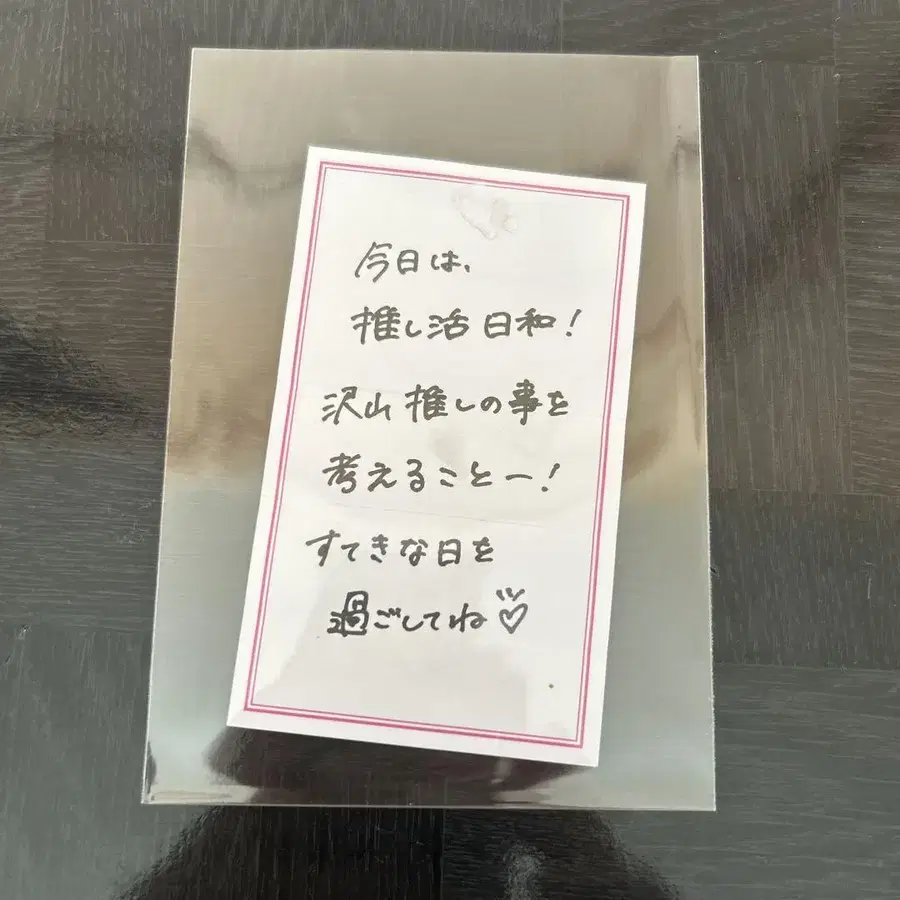 今日は、
推し活日和!
沢山推しの事を
考えることー!
すてきな日を
過ごしてね♡